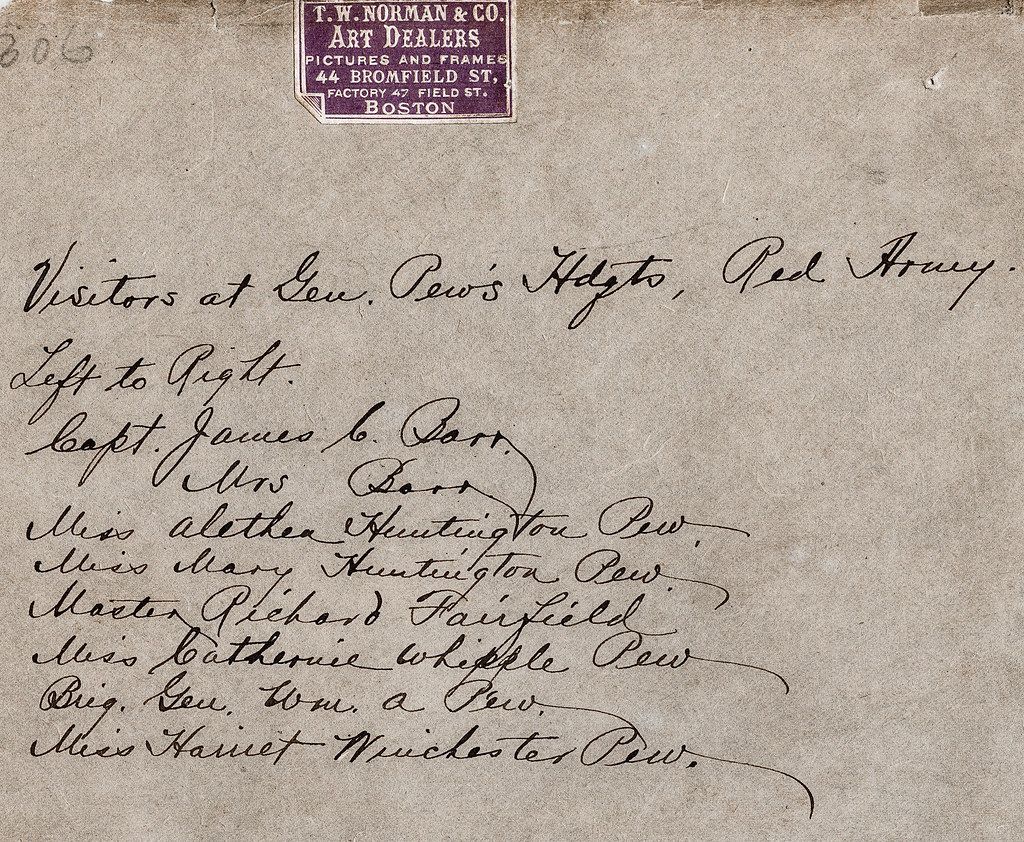 306
T. W. NORMAN & CO.
ART DEALERS
PICTURES AND FRAMES
44 BROMFIELD ST,
FACTORY 47 FIELD ST.
BOSTON
Visitors at Gen. Pew's Hdqts, Red Army.
Left to Right.
Capt. James C. Barr.
Mrs Barr
Miss Alethea Huntington Pew.
Miss Mary Huntington Pew.
Master Richard Fairfield
Miss Catherine Whipple Pew
Brig. Gen. Wm. A Pew.
Miss Harriet Winchester Pew.